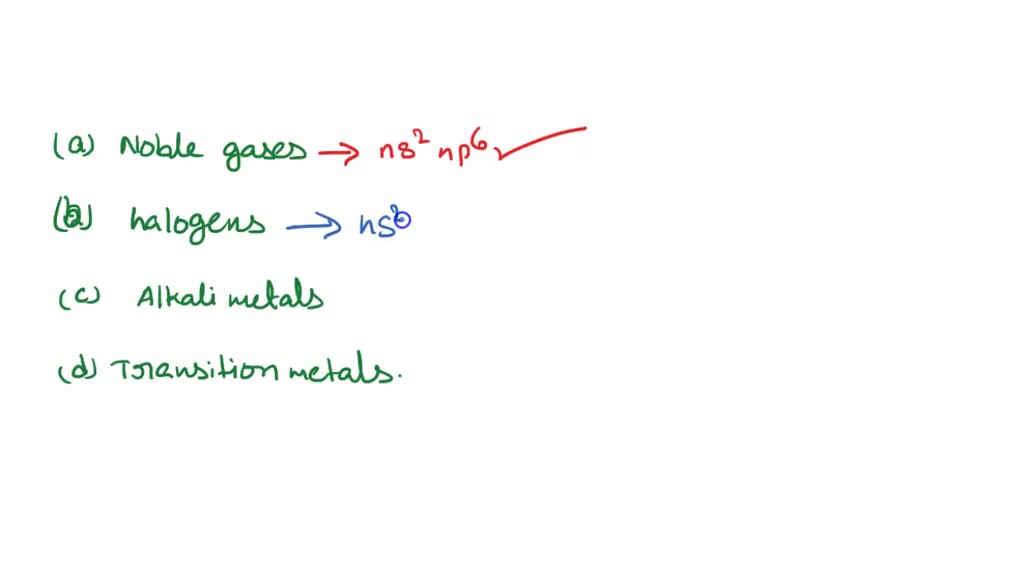 (a) Noble gases → ns² np⁶ ✓
(b) halogens → ns²
(c) Alkali metals
(d) Transition metals.